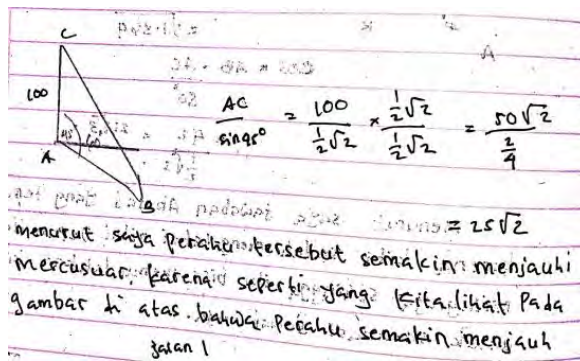 C
100
45
60
A
B
AC / sin 45° = 100 / ½√2 × ½√2 / ½√2 = 50√2 / 2/4
= 25√2
menurut saya perahu tersebut semakin menjauhi
mercusuar, karena seperti yang kita lihat pada
gambar di atas bahwa perahu semakin menjauh